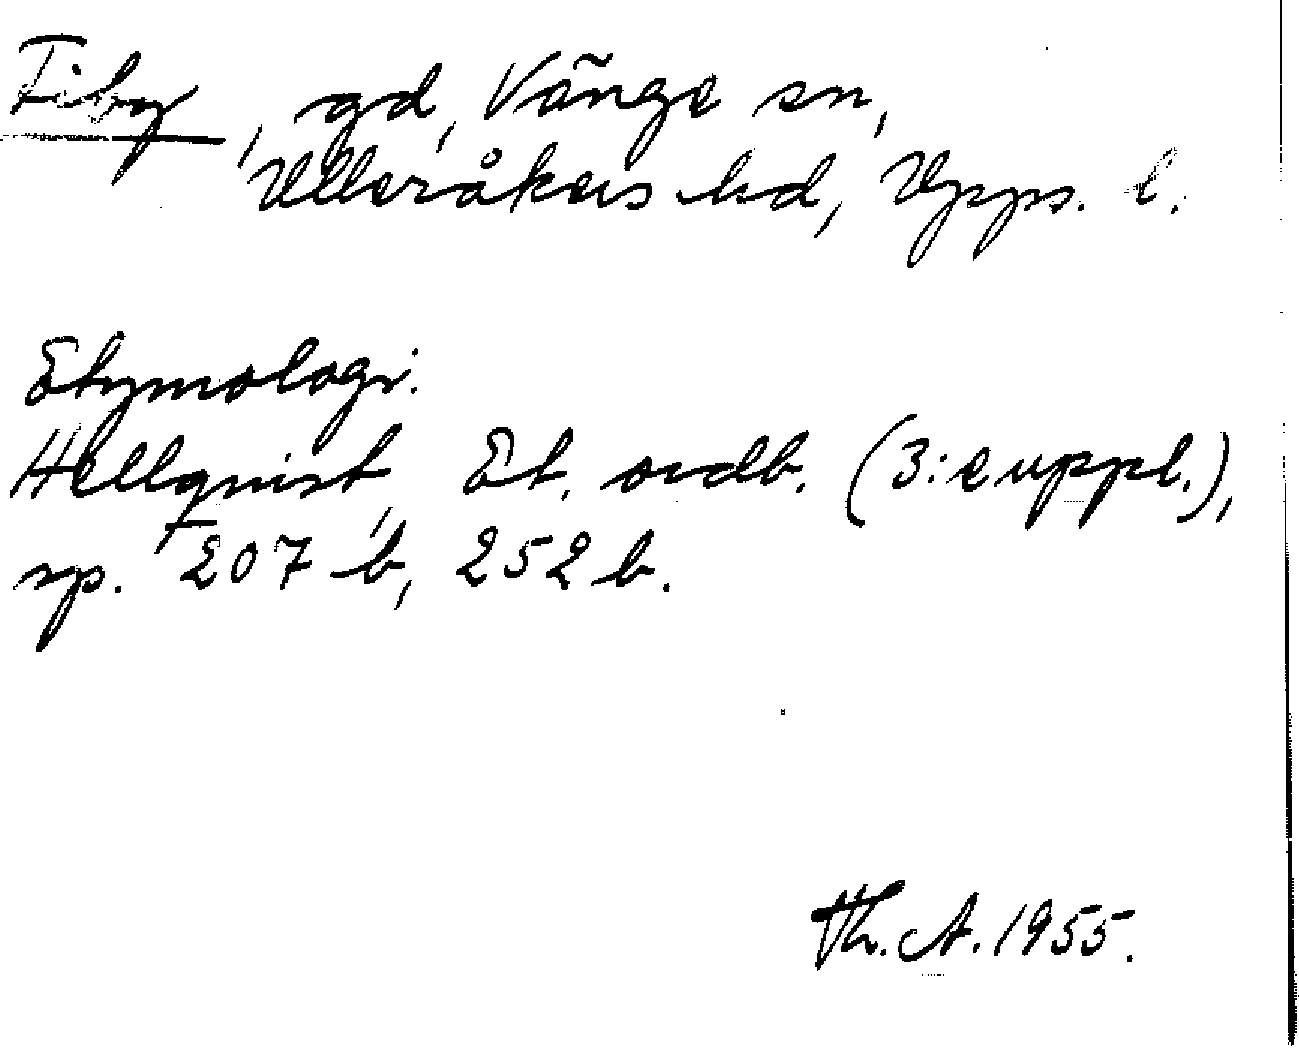 Fiby, gd, Vänge sn,
Ulleråkers hd, Upps. l.
Etymologi.
Hellquist, Et. ordb. (3:e uppl.),
sp. 207 b, 252 b.
Th. A. 1955.